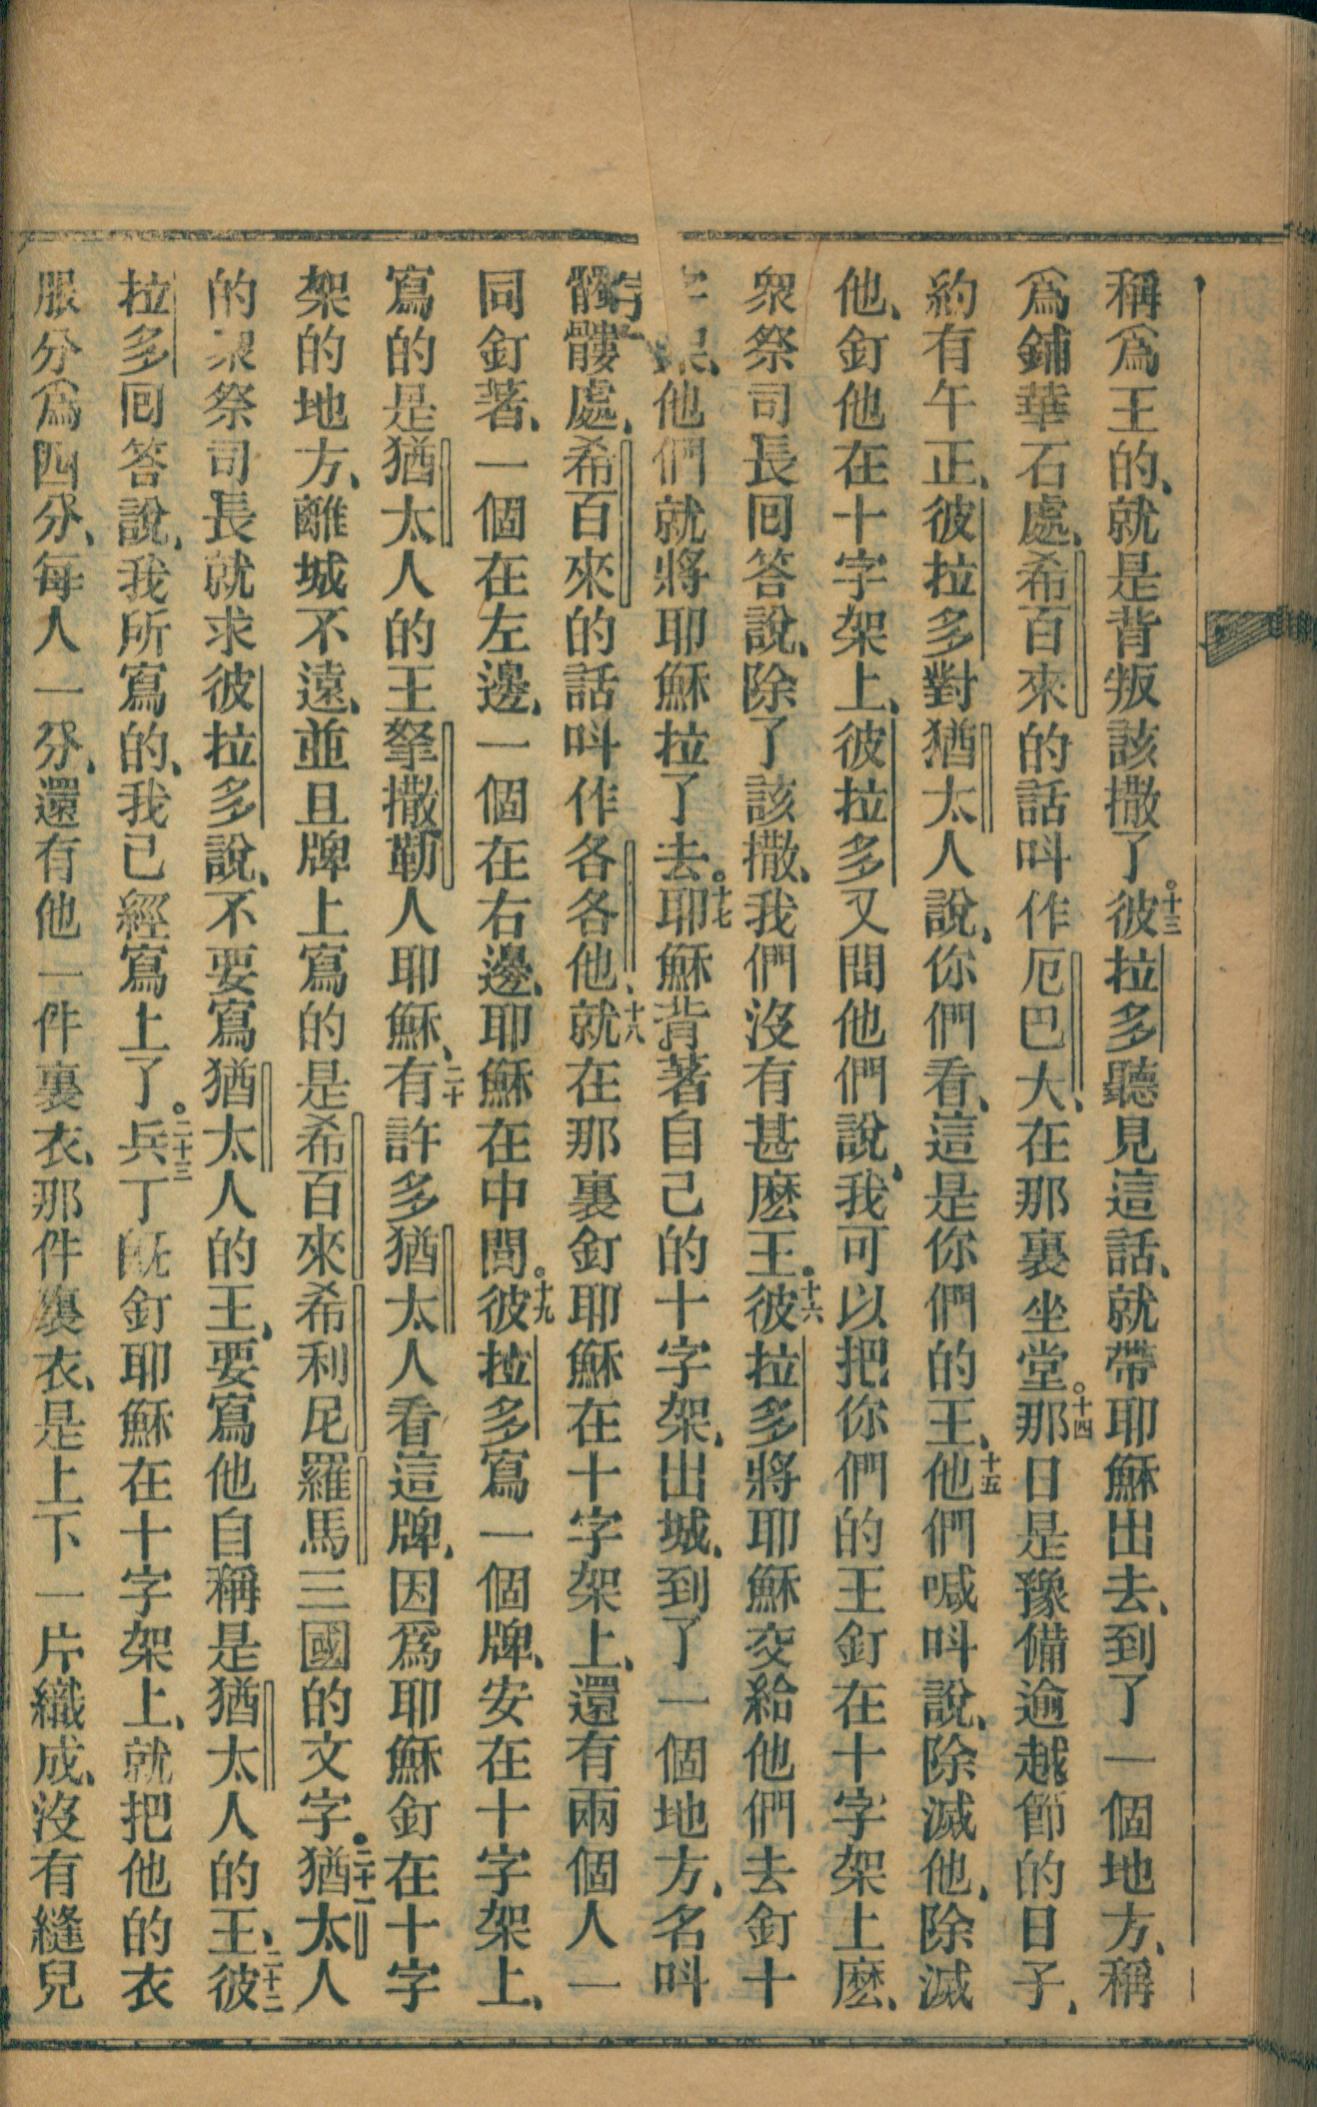 稱爲王的、就是背叛該撒了。十三彼拉多聽見這話、就帶耶穌出去、到了一個地方、稱
爲鋪華石處、希百來的話叫作厄巴大、在那裏坐堂。十四那日是豫備逾越節的日子、
約有午正、彼拉多對猶太人說、你們看、這是你們的王、十五他們喊叫說、除滅他、除滅
他、釘他在十字架上、彼拉多又問他們說、我可以把你們的王釘在十字架上麽、
衆祭司長回答說、除了該撒、我們沒有甚麽王。十六彼拉多將耶穌交給他們去釘十
他們就將耶穌拉了去。十七耶穌背著自己的十字架、出城、到了一個地方、名叫
髑髏處、希百來的話叫作各各他、十八就在那裏釘耶穌在十字架上、還有兩個人一
同釘著、一個在左邊、一個在右邊、耶穌在中間。十九彼拉多寫一個牌、安在十字架上、
寫的是猶太人的王拏撒勒人耶穌、二十有許多猶太人看這牌、因爲耶穌釘在十字
架的地方、離城不遠、並且牌上寫的是希百來希利尼羅馬三國的文字。二十一猶太人
的衆祭司長就求彼拉多說、不要寫猶太人的王、要寫他自稱是猶太人的王、二十二彼
拉多回答說、我所寫的、我已經寫上了。二十三兵丁旣釘耶穌在十字架上、就把他的衣
服分爲四分、每人一分、還有他一件裏衣、那件裏衣、是上下一片織成、沒有縫兒